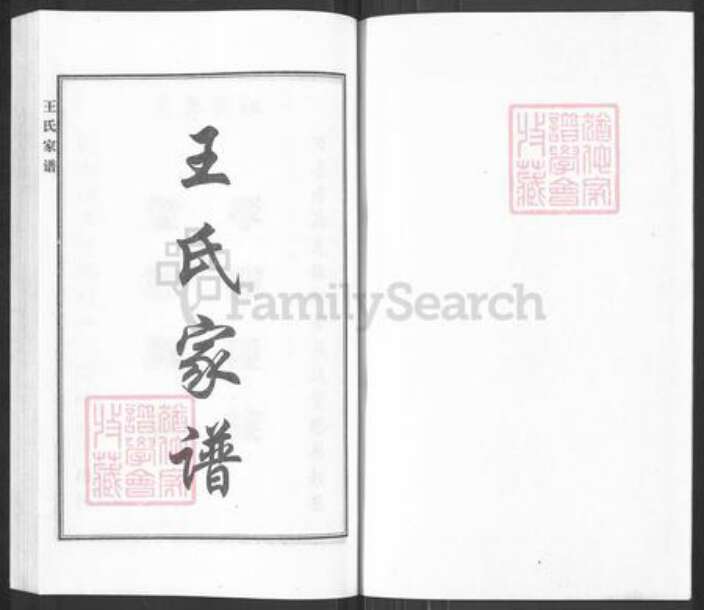 王氏家谱
王氏家谱
猶他家
譜學會
收藏
猶他家
譜學會
收藏
FamilySearch